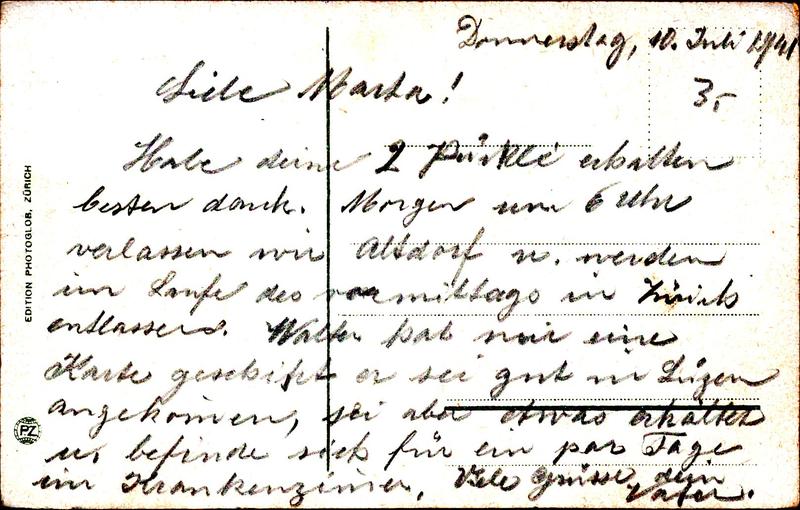 Donnerstag, 10. Juli 1941
3,-
Liebe Marta!
Habe deine 2 Päckle erhalten
besten dank. Morgen um 6 Uhr
verlassen wir Altdorf u. werden
im Laufe des vormittags in Zürich
entlassen. Walter hat mir eine
Karte geschikt er sei gut in Luzen
angekomen, sei aber etwas erkältet
u. befinde sich für ein par Tage
im Krankenzimer, Viele Grüsse dein
Vater.
EDITION PHOTOGLOB, ZÜRICH
PZ